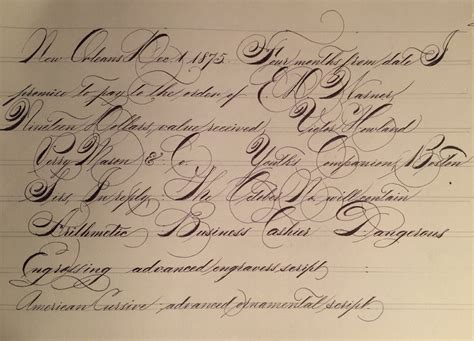 New Orleans Dec 1, 1875. Four months from date I
promise to pay to the order of E. M. Warner
Nineteen Dollars, value received, Victor Howland
Perry Mason & Co. Youth's Companion, Boston
Sirs, In reply: The October No. will contain
Arithmetic Business Cashier Dangerous
Engrossing advanced engravers script
American Cursive - advanced ornamental script.